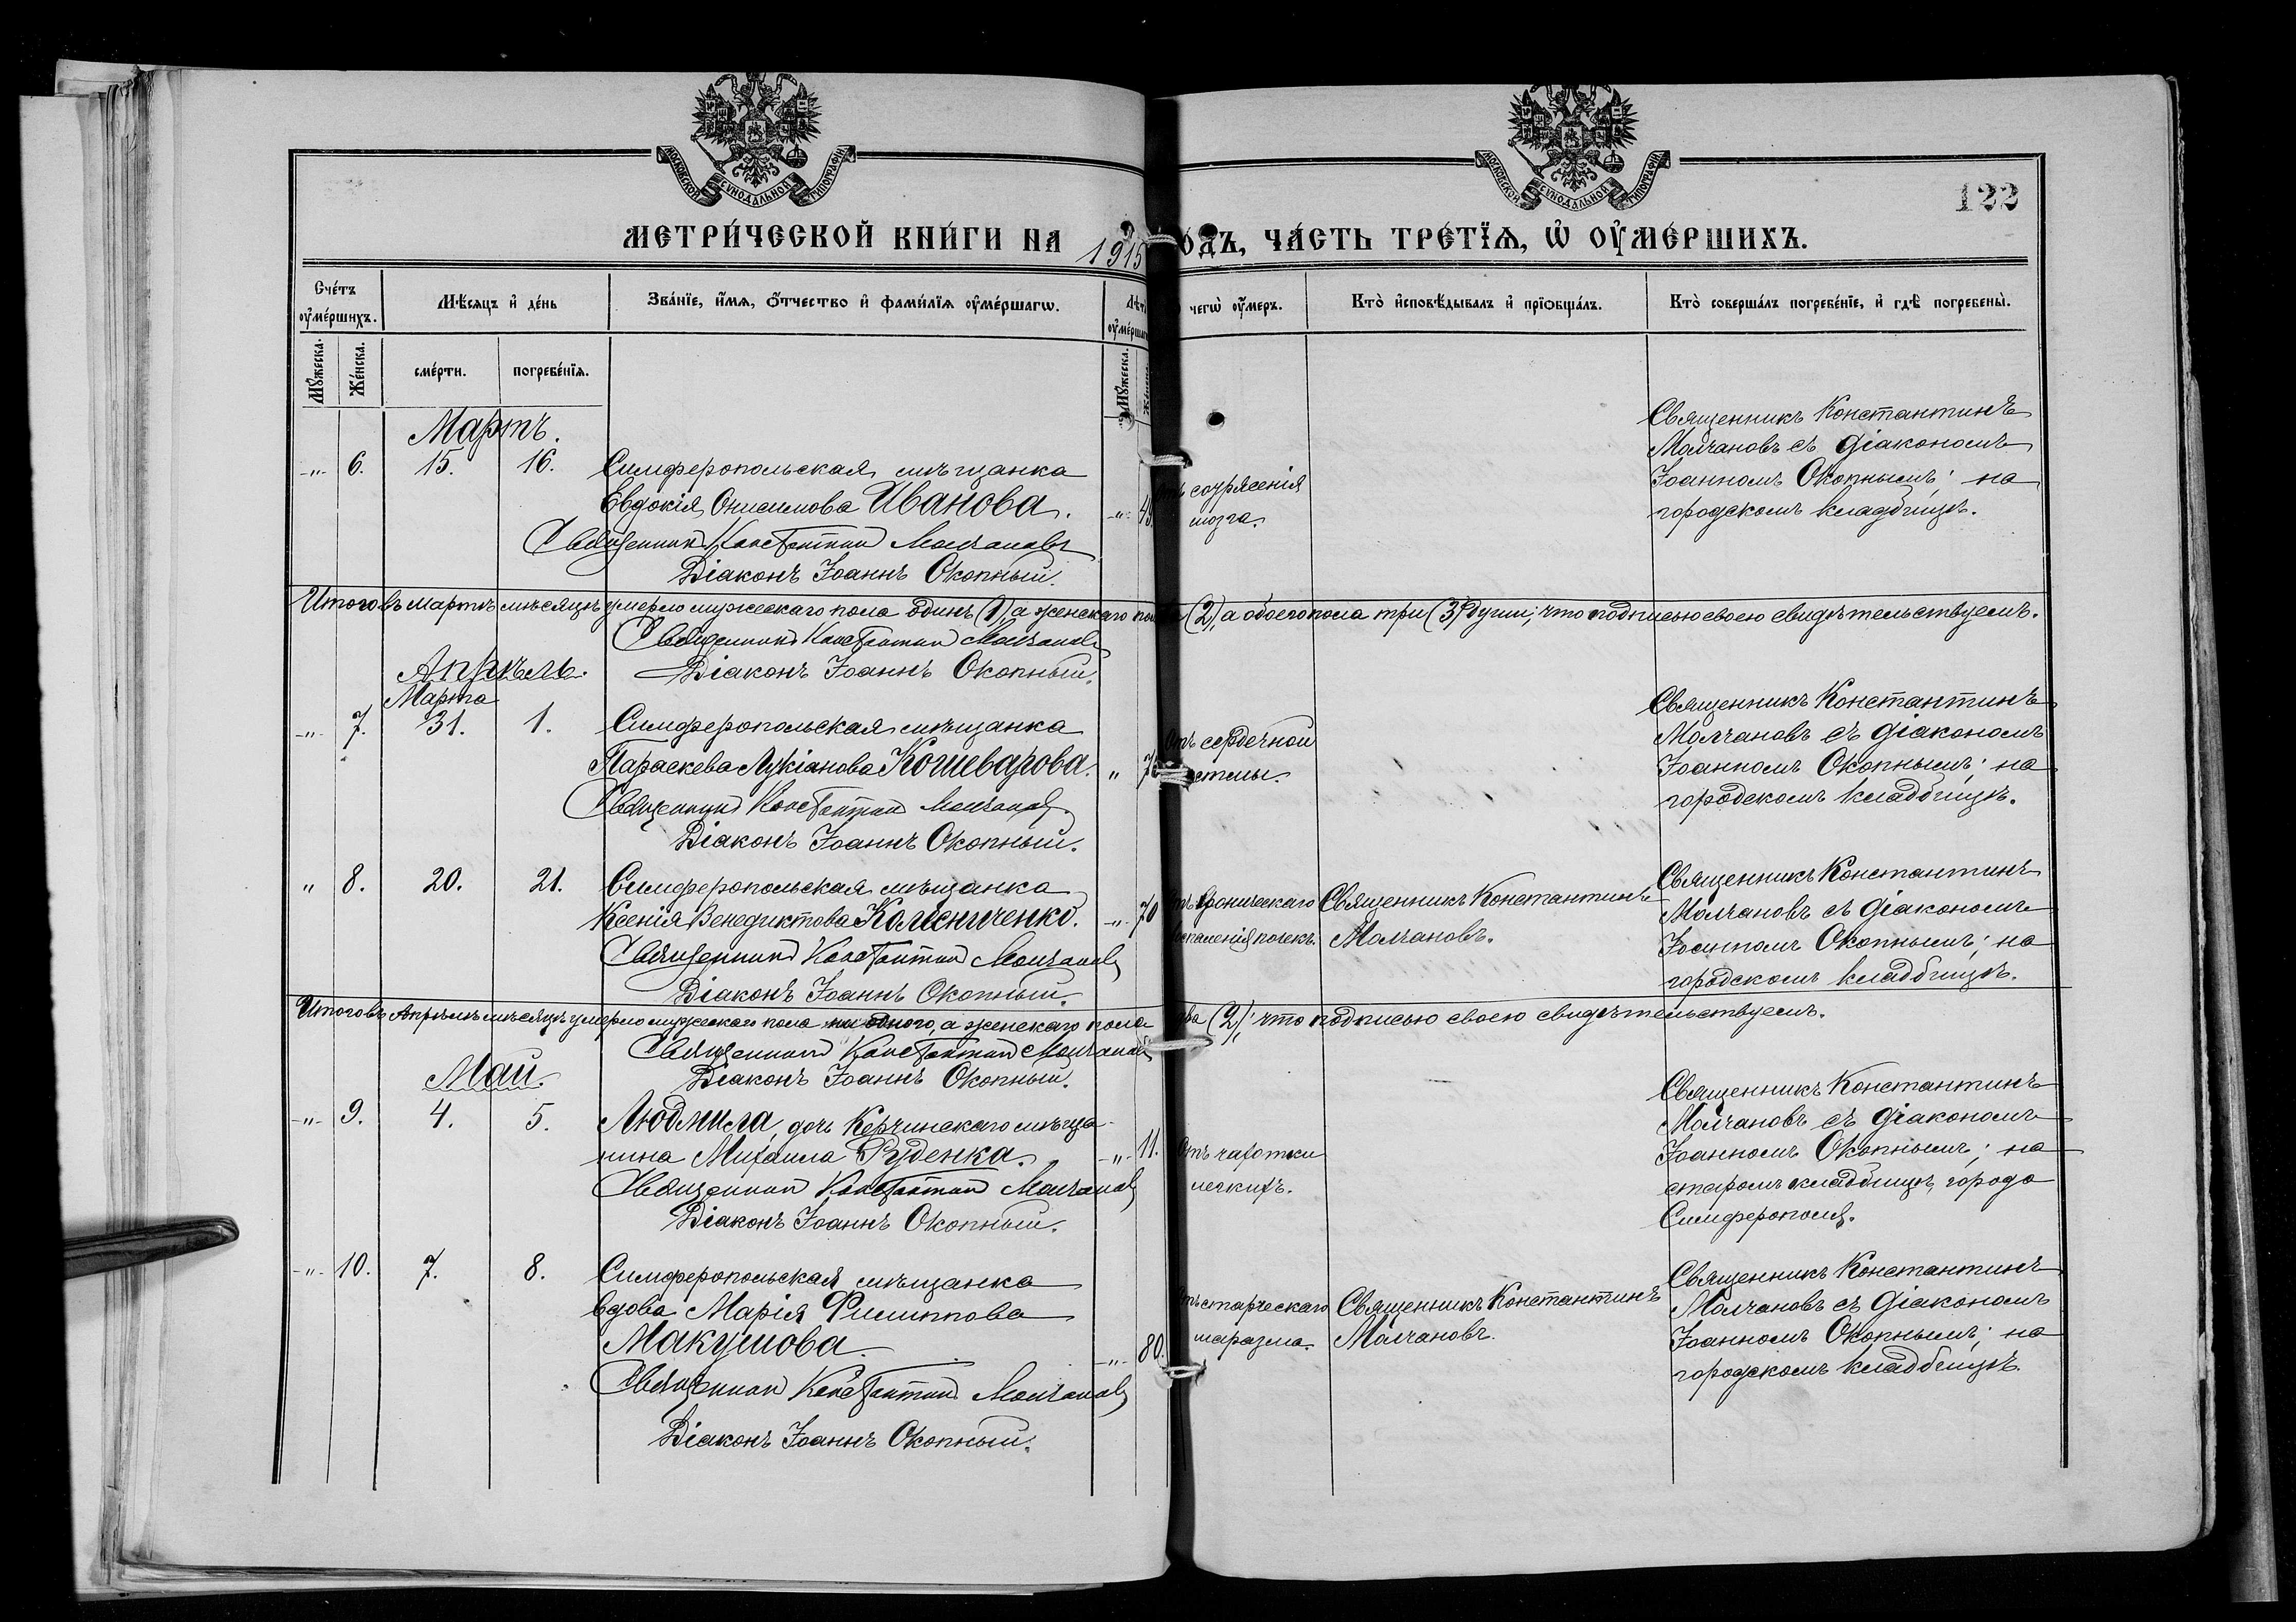 МОСКОВСКОЙ СѴНОДАЛЬНОЙ ТИПОГРАФІИ
МОСКОВСКОЙ СѴНОДАЛЬНОЙ ТИПОГРАФІИ
122
МЕТРИ́ЧЕСКОЙ КНИ́ГИ НА 1915 ОДЪ, ЧА́СТЬ ТРЕ́ТЇѦ, Ѡ҆ ОУ҆МЕ́РШИХЪ.
Сче́тъ оу҆ме́ршихъ.
Мѣ́сяцъ и҆ де́нь
Зва́нїе, и҆́мѧ, ѻ҆́тчество и҆ фами́лїѧ оу҆ме́ршагѡ.
Лѣт
оу҆ме́ршаг
чегѡ̀ оу҆́меръ.
Кто̀ и҆сповѣ́дывалъ и҆ прїѻбща́лъ.
Кто̀ соверша́лъ погребе́нїе, и҆ гдѣ̀ погребены̀.
Мꙋ́жеска.
Же́нска.
сме́рти.
погребе́нїѧ.
Мꙋ́жеска.
Мартъ.
-„- 6. 15. 16.
Симферопольская мѣщанка
Евдокія Онисимова Иванова. -„-
Священникъ Константинъ Молчановъ
Діаконъ Іоаннъ Окопный.
сотрясенія
мозга.
Священникъ Константинъ
Молчановъ съ діакономъ
Іоанномъ Окопнымъ; на
городскомъ кладбищѣ.
Итого въ мартѣ мѣсяцѣ умерло мужескаго пола одинъ (1), а женскаго (2), а обоего пола три (3) души; что подписью своею свидѣтельствуемъ.
Священникъ Константинъ Молчановъ
Діаконъ Іоаннъ Окопный.
Апрѣль.
Марта
-„- 7. 31. 1.
Симферопольская мѣщанка
Параскева Лукіанова Кошеварова. „
Священникъ Константинъ Молчановъ
Діаконъ Іоаннъ Окопный.
Отъ сердечной
астмы.
Священникъ Константинъ
Молчановъ съ діакономъ
Іоанномъ Окопнымъ; на
городскомъ кладбищѣ.
„ 8. 20. 21.
Симферопольская мѣщанка
Ксенія Венедиктова Колисниченко. -„- 70
Священникъ Константинъ Молчановъ
Діаконъ Іоаннъ Окопный.
Отъ хроническаго
воспаленія почекъ.
Священникъ Константинъ
Молчановъ.
Священникъ Константинъ
Молчановъ съ діакономъ
Іоанномъ Окопнымъ; на
городскомъ кладбищѣ.
Итого въ Апрѣлѣ мѣсяцѣ умерло мужескаго пола ни одного, а женскаго пола два (2); что подписью своею свидѣтельствуемъ.
Священникъ Константинъ Молчановъ
Діаконъ Іоаннъ Окопный.
Май.
-„- 9. 4. 5.
Людмила, дочь Керчинскаго мѣща-
нина Михаила Руденка. -„- 11.
Священникъ Константинъ Молчановъ
Діаконъ Іоаннъ Окопный.
Отъ чахотки
легкихъ.
Священникъ Константинъ
Молчановъ съ діакономъ
Іоанномъ Окопнымъ; на
старомъ кладбищѣ, города
Симферополя.
-„- 10. 7. 8.
Симферопольская мѣщанка
вдова Марія Филиппова
Макушова. -„- 80.
Священникъ Константинъ Молчановъ
Діаконъ Іоаннъ Окопный.
Отъ старческаго
маразма.
Священникъ Константинъ
Молчановъ.
Священникъ Константинъ
Молчановъ съ діакономъ
Іоанномъ Окопнымъ; на
городскомъ кладбищѣ.